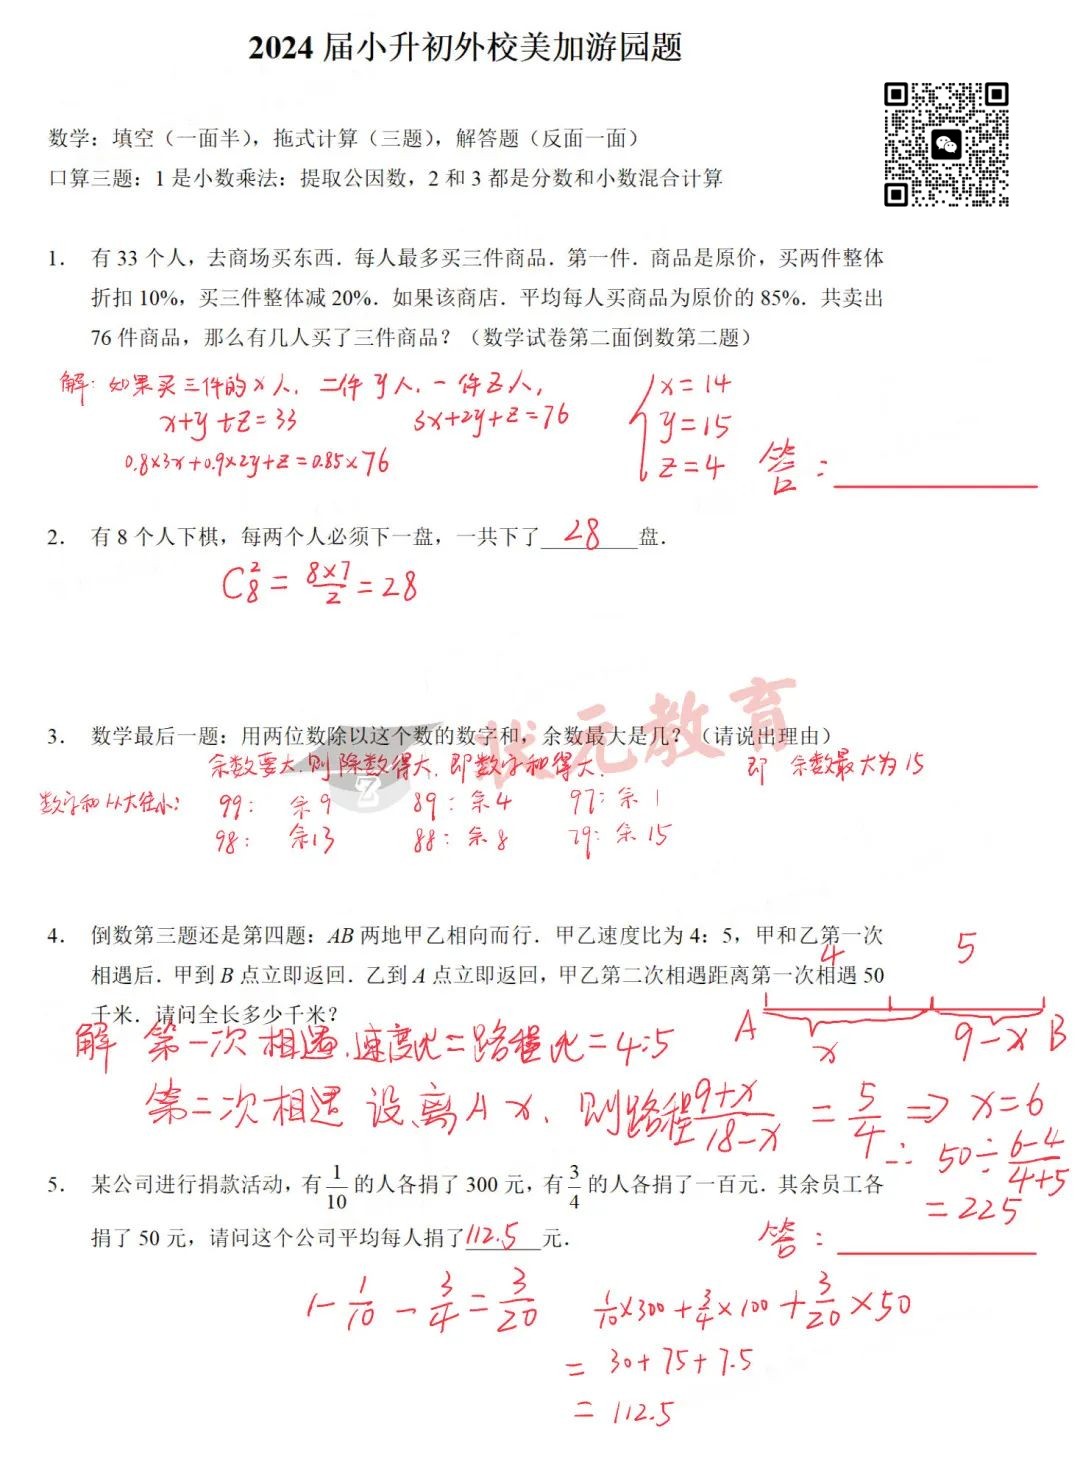 2024 届小升初外校美加游园题
数学：填空（一面半），拖式计算（三题），解答题（反面一面）
口算三题：1 是小数乘法：提取公因数，2 和 3 都是分数和小数混合计算
1． 有 33 个人，去商场买东西．每人最多买三件商品．第一件．商品是原价，买两件整体
折扣 10%，买三件整体减 20%．如果该商店．平均每人买商品为原价的 85%．共卖出
76 件商品，那么有几人买了三件商品？（数学试卷第二面倒数第二题）
解：如果买三件的x人，二件y人，一件z人，
x+y+z=33 3x+2y+z=76
0.8×3x+0.9×2y+z=0.85×76
x=14
y=15
z=4
答：
2． 有 8 个人下棋，每两个人必须下一盘，一共下了 28 盘．
C₈² = 8×7/2 = 28
状元教育
3． 数学最后一题：用两位数除以这个数的数字和，余数最大是几？（请说出理由）
余数要大，则除数得大，即数字和得大． 即 余数最大为15
数字和从大往小： 99：余9 89：余4 97：余1
98：余13 88：余8 79：余15
4． 倒数第三题还是第四题：AB 两地甲乙相向而行．甲乙速度比为 4：5，甲和乙第一次
相遇后．甲到 B 点立即返回．乙到 A 点立即返回，甲乙第二次相遇距离第一次相遇 50
千米．请问全长多少千米？
4 5
A x 9-x B
解 第一次相遇，速度比=路程比=4:5
第二次相遇 设离A x，则路程 9+x/18-x = 5/4 ⇒ x=6
∴ 50÷ 6-4/4+5
=225
答：
5． 某公司进行捐款活动，有 1/10 的人各捐了 300 元，有 3/4 的人各捐了一百元．其余员工各
捐了 50 元，请问这个公司平均每人捐了 112.5 元．
1- 1/10 - 3/4 = 3/20 1/10×300+3/4×100+3/20×50
= 30+75+7.5
= 112.5